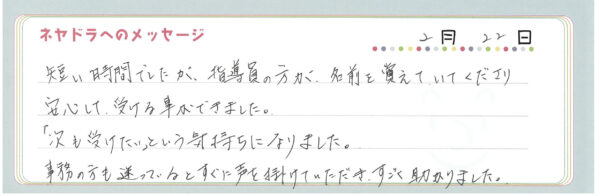 ネヤドラへのメッセージ
2月 22日
短い時間でしたが、指導員の方が、名前を覚えていてくださり
安心して、受ける事ができました。
「次も受けたい」という気持ちになりました。
事務の方も迷っているとすぐに声を掛けていただき、すごく助かりました。